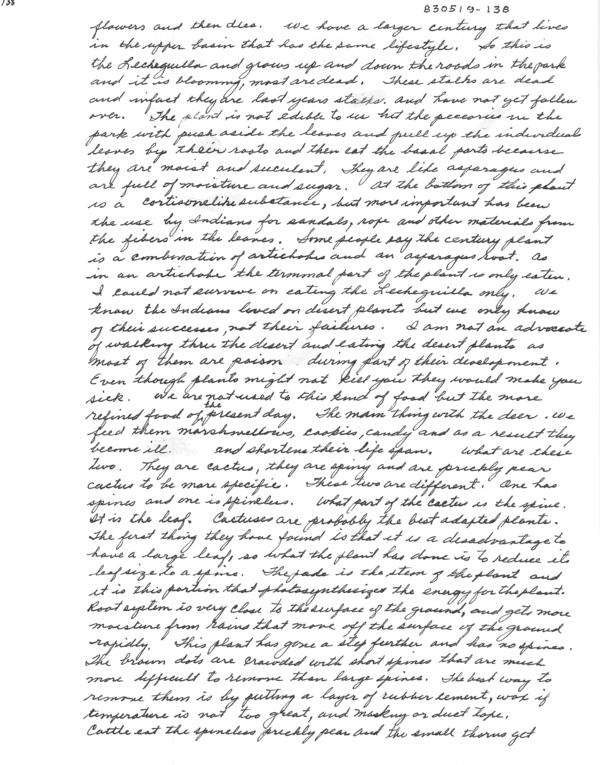 138
830519-138
flowers and then dies. We have a larger century that lives
in the upper basin that has the same lifestyle. So this is
the Lecheguilla and grows up and down the roads in the park
and it is blooming, most are dead. These stalks are dead
and infact they are last years stalks. and have not yet fallen
over. The plant is not edible to us but the peccaries in the
park with push aside the leaves and pull up the individual
leaves by their roots and then eat the basal parts because
they are moist and suculent. They are like asparagus and
are full of moisture and sugar. At the bottom of this plant
is a cortisonelike substance, but more important has been
the use by Indians for sandals, rope and other materials from
the fibers in the leaves. Some people say the century plant
is a combination of artichoke and an asparagus root. as
in an artichoke the terminal part of the plant is only eaten.
I could not survive on eating the Lecheguilla only. We
know the Indians lived on desert plants but we only know
of their successes, not their failures. I am not an advocate
of walking thru the desert and eating the desert plants as
most of them are poison during part of their development.
Even though plants might not kill you they would make you
sick. We are not used to this kind of food but the more
refined food of the present day. The main thing with the deer. We
feed them marshmellows, cookies, candy and as a result they
become ill and shortens their life span. What are these
two. They are cactus, they are spiny and are prickly pear
cactus to be more specific. These two are different. One has
spines and one is spineless. What part of the cactus is the spine.
It is the leaf. Cactuses are probably the best adapted plants.
The first thing they have found is that it is a disadvantage to
have a large leaf, so what the plant has done is to reduce its
leaf size to a spine. The pade is the stem of the plant and
it is this portion that photosynthesizes the energy for the plant.
Root system is very close to the surface of the ground, and gets more
moisture from rains that move off the surface of the ground
rapidly. This plant has gone a step further and has no spines.
The brown dots are crowded with short spines that are much
more difficult to remove than large spines. The best way to
remove them is by putting a layer of rubber cement, wax if
temperature is not too great, and masking or duct tape.
Cattle eat the spineless prickly pear and the small thorns get